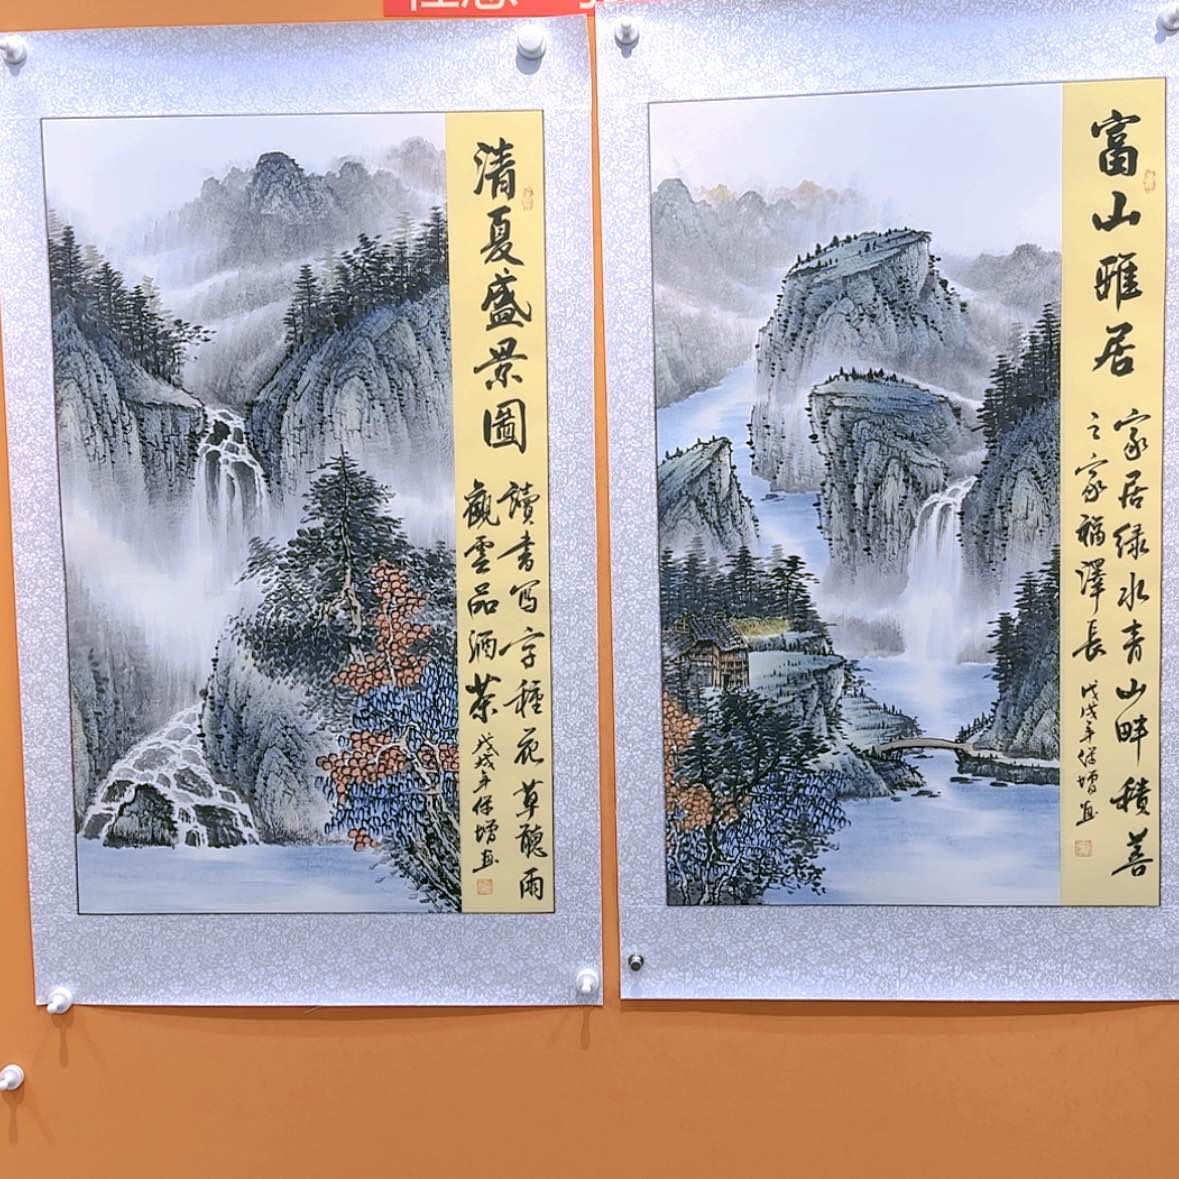 清夏盛景圖
讀書写字種花草聽雨
觀雲品酒茶
戊戌年保增画
富山雅居
家居绿水青山畔積善
之家福澤長
戊戌年保增画